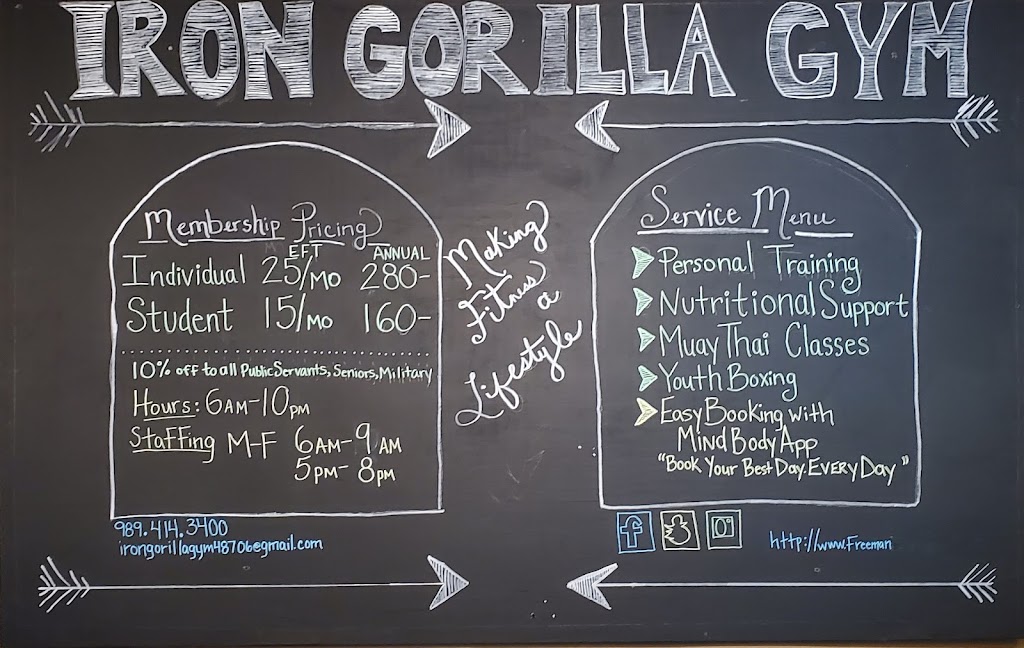 IRON GORILLA GYM
Membership Pricing
EFT ANNUAL
Individual 25/MO 280-
Student 15/MO 160-
10% off to all Public Servants, Seniors, Military
Hours: 6AM-10PM
Staffing M-F 6AM-9AM
5PM-8PM
989.414.3400
irongorillagym48706@gmail.com
Making
Fitness
a
Lifestyle
Service Menu
Personal Training
Nutritional Support
Muay Thai Classes
Youth Boxing
Easy Booking with
Mind Body App
"Book Your Best Day. EVERY Day"
http://www.Freeman